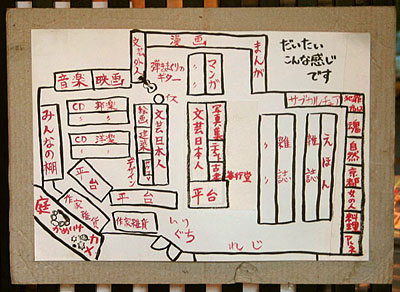 だいたい
こんな感じ
です
漫画
文芸外人
弾きまくりの
ギター
マンガ
〃
まんが
音楽
映画
イス
サブカルチュア
みんなの棚
CD 邦楽
〃 〃
CD 洋楽
〃 〃
絵画
建築
デザイン
文芸日本人
文芸日本人
写真集
古本
善行堂
雑誌
〃
えほん
雑誌
魂
自然
京都
女の人
料理
平台
平台
平台
庭
かめいけ
カメ
作家雑貨
作家雑貨
いり
ぐち
れじ